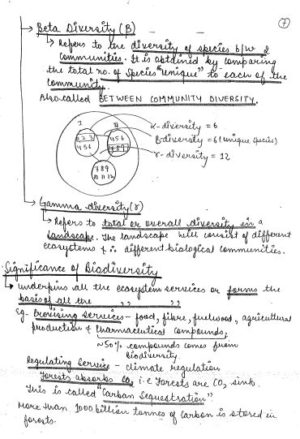 7
Beta Diversity (β)
Refers to the diversity of species b/w 2
communities. It is obtained by comparing
the total no. of species "unique" to each of the
community.
Also called BETWEEN COMMUNITY DIVERSITY.
I II
1 2 3 4 5 6
4 5 6 7 8 9
7 8 9
10 11 12
α-diversity = 6
β-diversity = 6 (unique species)
γ-diversity = 12
Gamma diversity (γ)
Refers to total or overall diversity in a
landscape. The landscape will consist of different
ecosystems & in different biological communities.
Significance of biodiversity
underpins all the ecosystem services or forms the
basis of all the ,, ,,
eg. Provising services - food, fibre, fuelwood, agricultural
production & Pharmaceutical compounds,
~50% compounds comes from
biodiversity
Regulating Service - climate regulation
Forests absorbs CO₂ i.e Forests are CO₂ sink.
This is called "Carban Sequestration"
More than 1000 billion tonnes of carbon is stored in
forests.